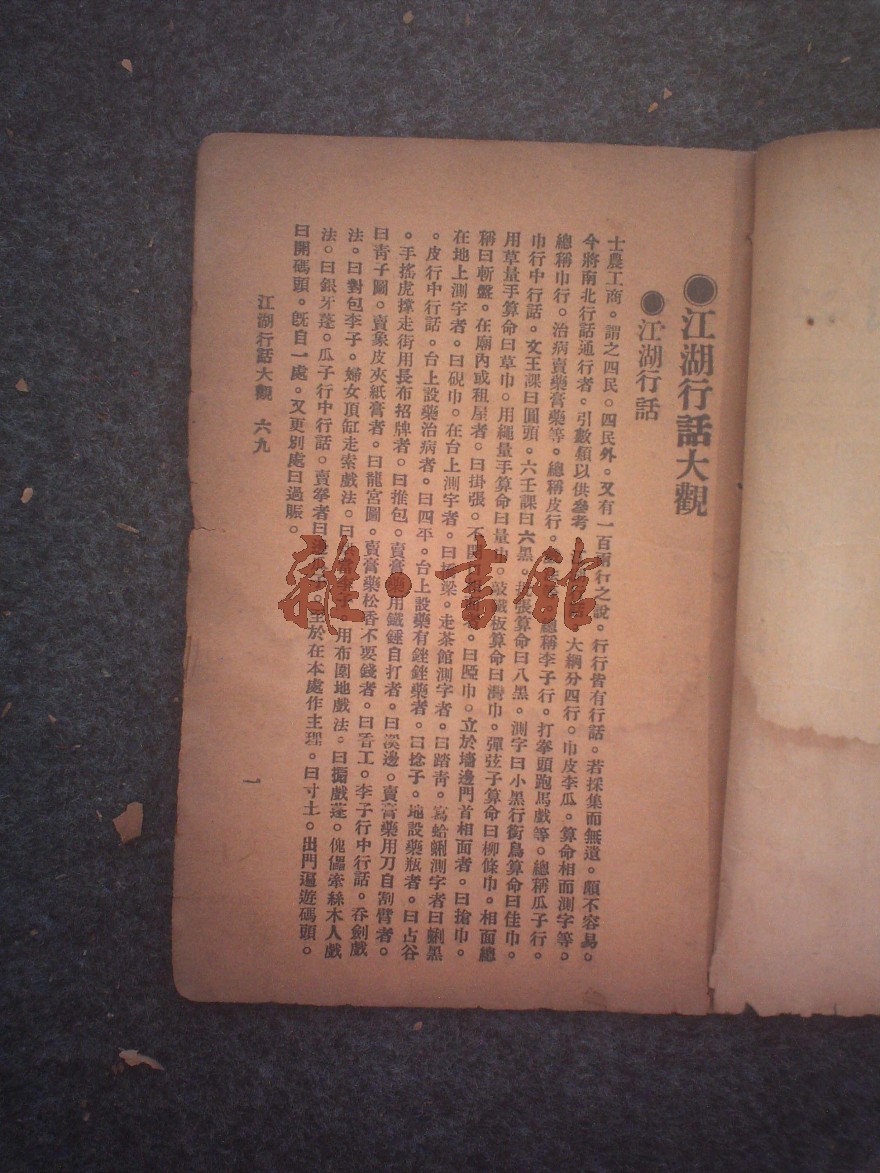 江湖行話大觀
江湖行話
士農工商。謂之四民。四民外。又有一百兩行之說。行行皆有行話。若採集而無遺。頗不容易。
今將南北行話通行者。引數類以供參考。大綱分四行。巾皮李瓜。算命相面測字等。
總稱巾行。治病賣藥膏藥等。總稱皮行。總稱李子行。打拳頭跑馬戲等。總稱瓜子行。
巾行中行話。文王課曰圓頭。六壬課曰六黑。張算命曰八黑。測字曰小黑行銜鳥算命曰佳巾。
用草量手算命曰草巾。用繩量手算命曰量巾。敲鐵板算命曰灣巾。彈弦子算命曰柳條巾。相面總
稱曰斬盤。在廟內或租屋者。曰掛張。不開曰啞巾。立於墻邊門首相面者。曰搶巾。
在地上測字者。曰硯巾。在台上測字者。曰梁。走茶館測字者。曰踏青。寫蛤蜊測字者曰蜊黑
。皮行中行話。台上設藥治病者。曰四平。台上設藥有銼銼藥者。曰捻子。地設藥瓶者。曰占谷
。手搖虎撑走街用長布招牌者。曰推包。賣膏藥用鐵錘自打者。曰溪邊。賣膏藥用刀自割臂者。
曰青子圖。賣象皮夾紙膏者。曰龍宮圖。賣膏藥松香不要錢者。曰香工。李子行中行話。吞劍戲
法。曰對包李子。婦女頂缸走索戲法。曰用布圍地戲法。曰戲蓬。傀儡牽絲木人戲
法。曰銀牙蓬。瓜子行中行話。賣拳者曰至於在本處作主理。曰寸土。出門逼遊碼頭。
曰開碼頭。旣自一處。又更別處曰過賬。
江湖行話大觀 六九
一
雜·書館